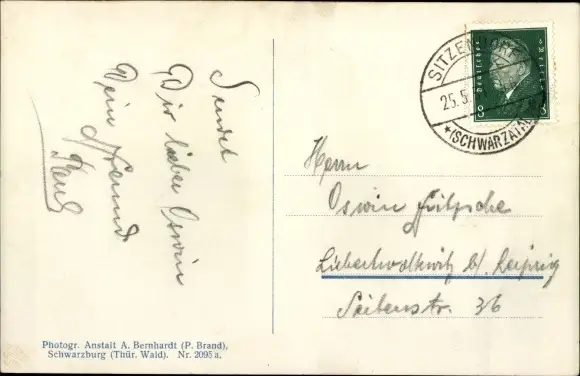 Sendet
Dir lieber Oswin
Dein Freund
Paul
SITZENDORF
25.5.
*(SCHWARZATAL)*
Deutsches Reich
8 8
Herrn
Oswin Fritzsche
Liebertwolkwitz b/. Leipzig
Seitenstr. 36
Photogr. Anstalt A. Bernhardt (P. Brand),
Schwarzburg (Thür. Wald). Nr. 2095 a.